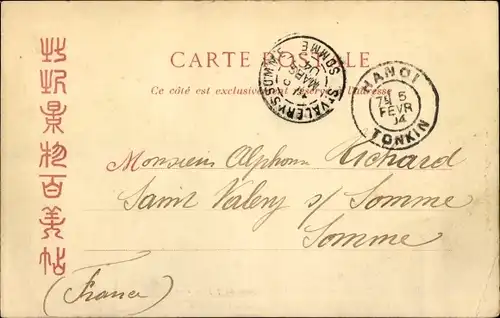 CARTE POSTALE
Ce côté est exclusivement réservé à l'adresse
ST VALERY-S-SOMME
SOMME
MARS
04
HANOI
5
FEVR
04
TONKIN
Monsieur Alphonse Richard
Saint Valery s/ Somme
Somme
(France)
景物百美帖